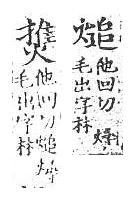 㷟
他回切
毛出字林
他回切㷟
毛出字林